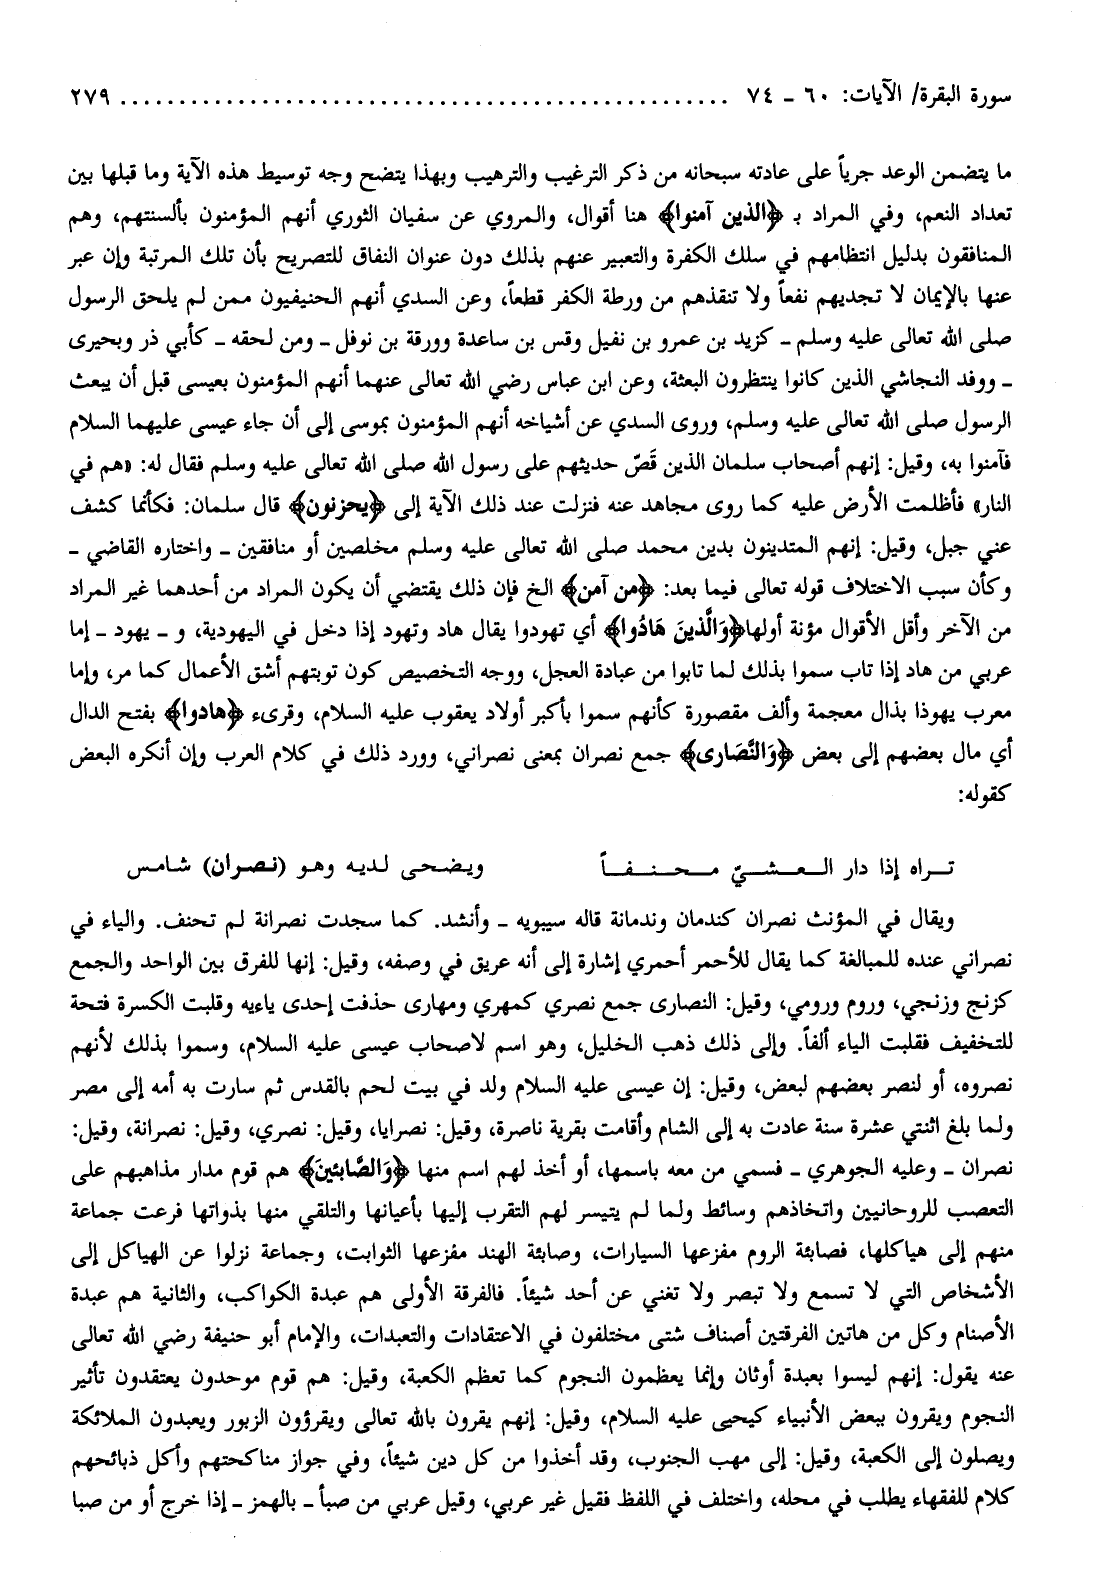 سورة البقرة/ الآيات: ٦٠ ـ ٧٤ ................................................... ٢٧٩
ما يتضمن الوعد جرياً على عادته سبحانه من ذكر الترغيب والترهيب وبهذا يتضح وجه توسيط هذه الآية وما قبلها بين
تعداد النعم، وفي المراد بـ ﴿الذين آمنوا﴾ هنا أقوال، والمروي عن سفيان الثوري أنهم المؤمنون بألسنتهم، وهم
المنافقون بدليل انتظامهم في سلك الكفرة والتعبير عنهم بذلك دون عنوان النفاق للتصريح بأن تلك المرتبة وإن عبر
عنها بالإيمان لا تجديهم نفعاً ولا تنقذهم من ورطة الكفر قطعاً، وعن السدي أنهم الحنيفيون ممن لم يلحق الرسول
صلى الله تعالى عليه وسلم ـ كزيد بن عمرو بن نفيل وقس بن ساعدة وورقة بن نوفل ـ ومن لحقه ـ كأبي ذر وبحيرى
ـ ووفد النجاشي الذين كانوا ينتظرون البعثة، وعن ابن عباس رضي الله تعالى عنهما أنهم المؤمنون بعيسى قبل أن يبعث
الرسول صلى الله تعالى عليه وسلم، وروى السدي عن أشياخه أنهم المؤمنون بموسى إلى أن جاء عيسى عليهما السلام
فآمنوا به، وقيل: إنهم أصحاب سلمان الذين قَصّ حديثهم على رسول الله صلى الله تعالى عليه وسلم فقال له: «هم في
النار» فأظلمت الأرض عليه كما روى مجاهد عنه فنزلت عند ذلك الآية إلى ﴿يحزنون﴾ قال سلمان: فكأنما كشف
عني جبل، وقيل: إنهم المتدينون بدين محمد صلى الله تعالى عليه وسلم مخلصين أو منافقين ـ واختاره القاضي ـ
وكأن سبب الاختلاف قوله تعالى فيما بعد: ﴿من آمن﴾ الخ فإن ذلك يقتضي أن يكون المراد من أحدهما غير المراد
من الآخر وأقل الأقوال مؤنة أولها﴿وَالَّذينَ هَادُوا﴾ أي تهودوا يقال هاد وتهود إذا دخل في اليهودية، و ـ يهود ـ إما
عربي من هاد إذا تاب سموا بذلك لما تابوا من عبادة العجل، ووجه التخصيص كون توبتهم أشق الأعمال كما مر، وإما
معرب يهوذا بذال معجمة وألف مقصورة كأنهم سموا بأكبر أولاد يعقوب عليه السلام، وقرىء ﴿هادوا﴾ بفتح الدال
أي مال بعضهم إلى بعض ﴿وَالنَّصَارى﴾ جمع نصران بمعنى نصراني، وورد ذلك في كلام العرب وإن أنكره البعض
كقوله:
تـراه إذا دار العشيّ محنفاً ويضحى لديه وهو (نصران) شامس
ويقال في المؤنث نصران كندمان وندمانة قاله سيبويه ـ وأنشد. كما سجدت نصرانة لم تحنف. والياء في
نصراني عنده للمبالغة كما يقال للأحمر أحمري إشارة إلى أنه عريق في وصفه، وقيل: إنها للفرق بين الواحد والجمع
كزنج وزنجي، وروم ورومي، وقيل: النصارى جمع نصري كمهري ومهارى حذفت إحدى ياءيه وقلبت الكسرة فتحة
للتخفيف فقلبت الياء ألفاً. وإلى ذلك ذهب الخليل، وهو اسم لاصحاب عيسى عليه السلام، وسموا بذلك لأنهم
نصروه، أو لنصر بعضهم لبعض، وقيل: إن عيسى عليه السلام ولد في بيت لحم بالقدس ثم سارت به أمه إلى مصر
ولما بلغ اثنتي عشرة سنة عادت به إلى الشام وأقامت بقرية ناصرة، وقيل: نصرايا، وقيل: نصري، وقيل: نصرانة، وقيل:
نصران ـ وعليه الجوهري ـ فسمي من معه باسمها، أو أخذ لهم اسم منها ﴿وَالصَّابئينَ﴾ هم قوم مدار مذاهبهم على
التعصب للروحانيين واتخاذهم وسائط ولما لم يتيسر لهم التقرب إليها بأعيانها والتلقي منها بذواتها فرعت جماعة
منهم إلى هياكلها، فصابئة الروم مفزعها السيارات، وصابئة الهند مفزعها الثوابت، وجماعة نزلوا عن الهياكل إلى
الأشخاص التي لا تسمع ولا تبصر ولا تغني عن أحد شيئاً. فالفرقة الأولى هم عبدة الكواكب، والثانية هم عبدة
الأصنام وكل من هاتين الفرقتين أصناف شتى مختلفون في الاعتقادات والتعبدات، والإمام أبو حنيفة رضي الله تعالى
عنه يقول: إنهم ليسوا بعبدة أوثان وإنما يعظمون النجوم كما تعظم الكعبة، وقيل: هم قوم موحدون يعتقدون تأثير
النجوم ويقرون ببعض الأنبياء كيحيى عليه السلام، وقيل: إنهم يقرون بالله تعالى ويقرؤون الزبور ويعبدون الملائكة
ويصلون إلى الكعبة، وقيل: إلى مهب الجنوب، وقد أخذوا من كل دين شيئاً، وفي جواز مناكحتهم وأكل ذبائحهم
كلام للفقهاء يطلب في محله، واختلف في اللفظ فقيل غير عربي، وقيل عربي من صبأ ـ بالهمز ـ إذا خرج أو من صبا